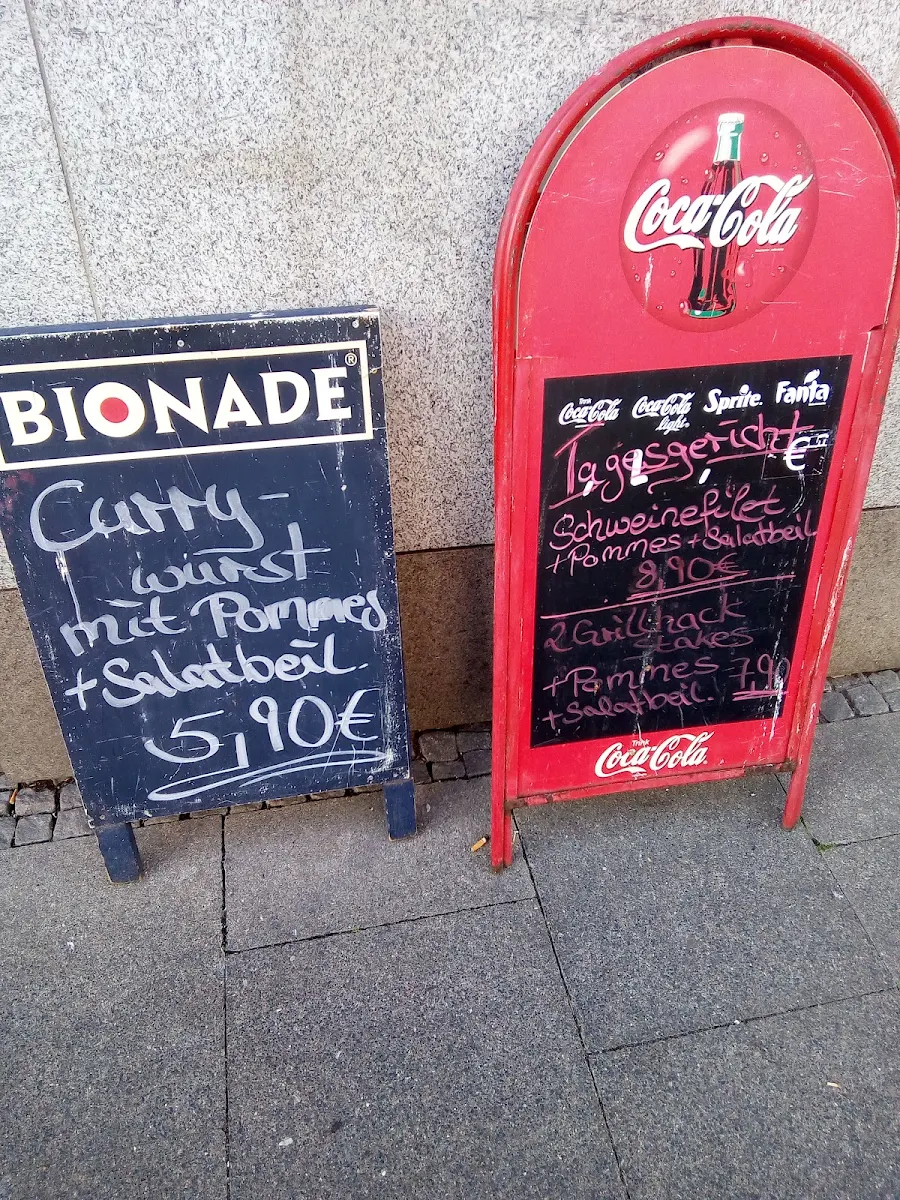 BIONADE®
Curry-
wurst
mit Pommes
+ Salatbeil.
5,90€
Coca-Cola
Coca-Cola Coca-Cola light Sprite Fanta
Tagesgericht
€
Schweinefilet
+ Pommes + Salatbeil
8,90€
2 Grillhack
stakes
+ Pommes 7,90
+ Salatbeil.
Think
Coca-Cola